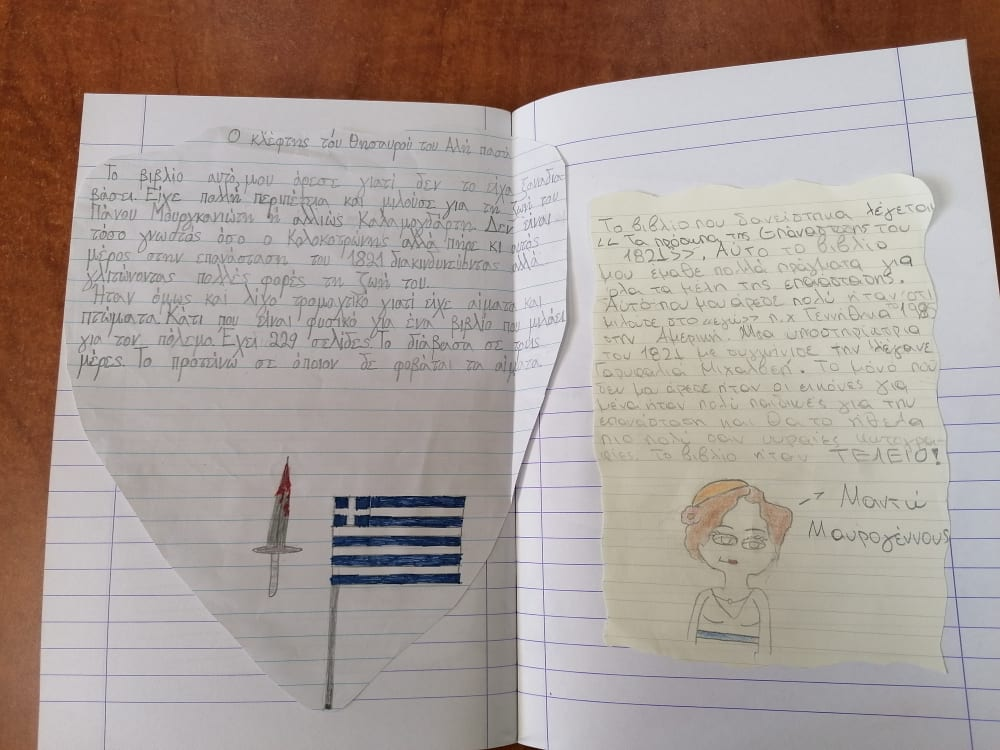 Ο κλέφτης του Θησαυρού του Αλή πασά
Το βιβλίο αυτό μου άρεσε γιατί δεν το είχα ξαναδια-
βάσει. Είχε πολλή περιπέτεια και μιλούσε για τη ζωή του
Πάνου ή αλλιώς Δεν είναι
τόσο γνωστός όσο ο Κολοκοτρώνης αλλά πήρε κι αυτός
μέρος στην επανάσταση του 1821 διακινδυνεύοντας αλλά
γλιτώνοντας πολλές φορές τη ζωή του.
Ήταν όμως και λίγο τρομαχτικό γιατί είχε αίματα και
πτώματα. Κάτι που είναι φυσικό για ένα βιβλίο που μιλάει
για τον πόλεμο. Έχει 229 σελίδες. Το διάβασα σε τρεις
μέρες. Το προτείνω σε όποιον δε φοβάται τα αίματα.
Το βιβλίο που δανείστηκα λέγεται
<< Τα πρόσωπα της Επανάστασης του
1821>>. Αύτο το βιβλίο
μου έμαθε πολλά πράγματα για
όλα τα μέλη της επαναστασης.
Αυτό που μου άρεσε πολύ ήταν ότι
μιλούσε στο «εγώ» π.χ Γεννήθηκα
στην Αμερική. Μια υποστηρίκτρια
του 1821 με συγκίνησε την λέγανε
Το μόνο που
δεν μου άρεσε ήταν οι εικόνες για
μένα ήταν πολύ παιδικές για την
επανάσταση και θα το ήθελα
πιο πολύ σαν
το βιβλίο ήταν ΤΕΛΕΙΟ!
Μαντώ
Μαυρογέννους